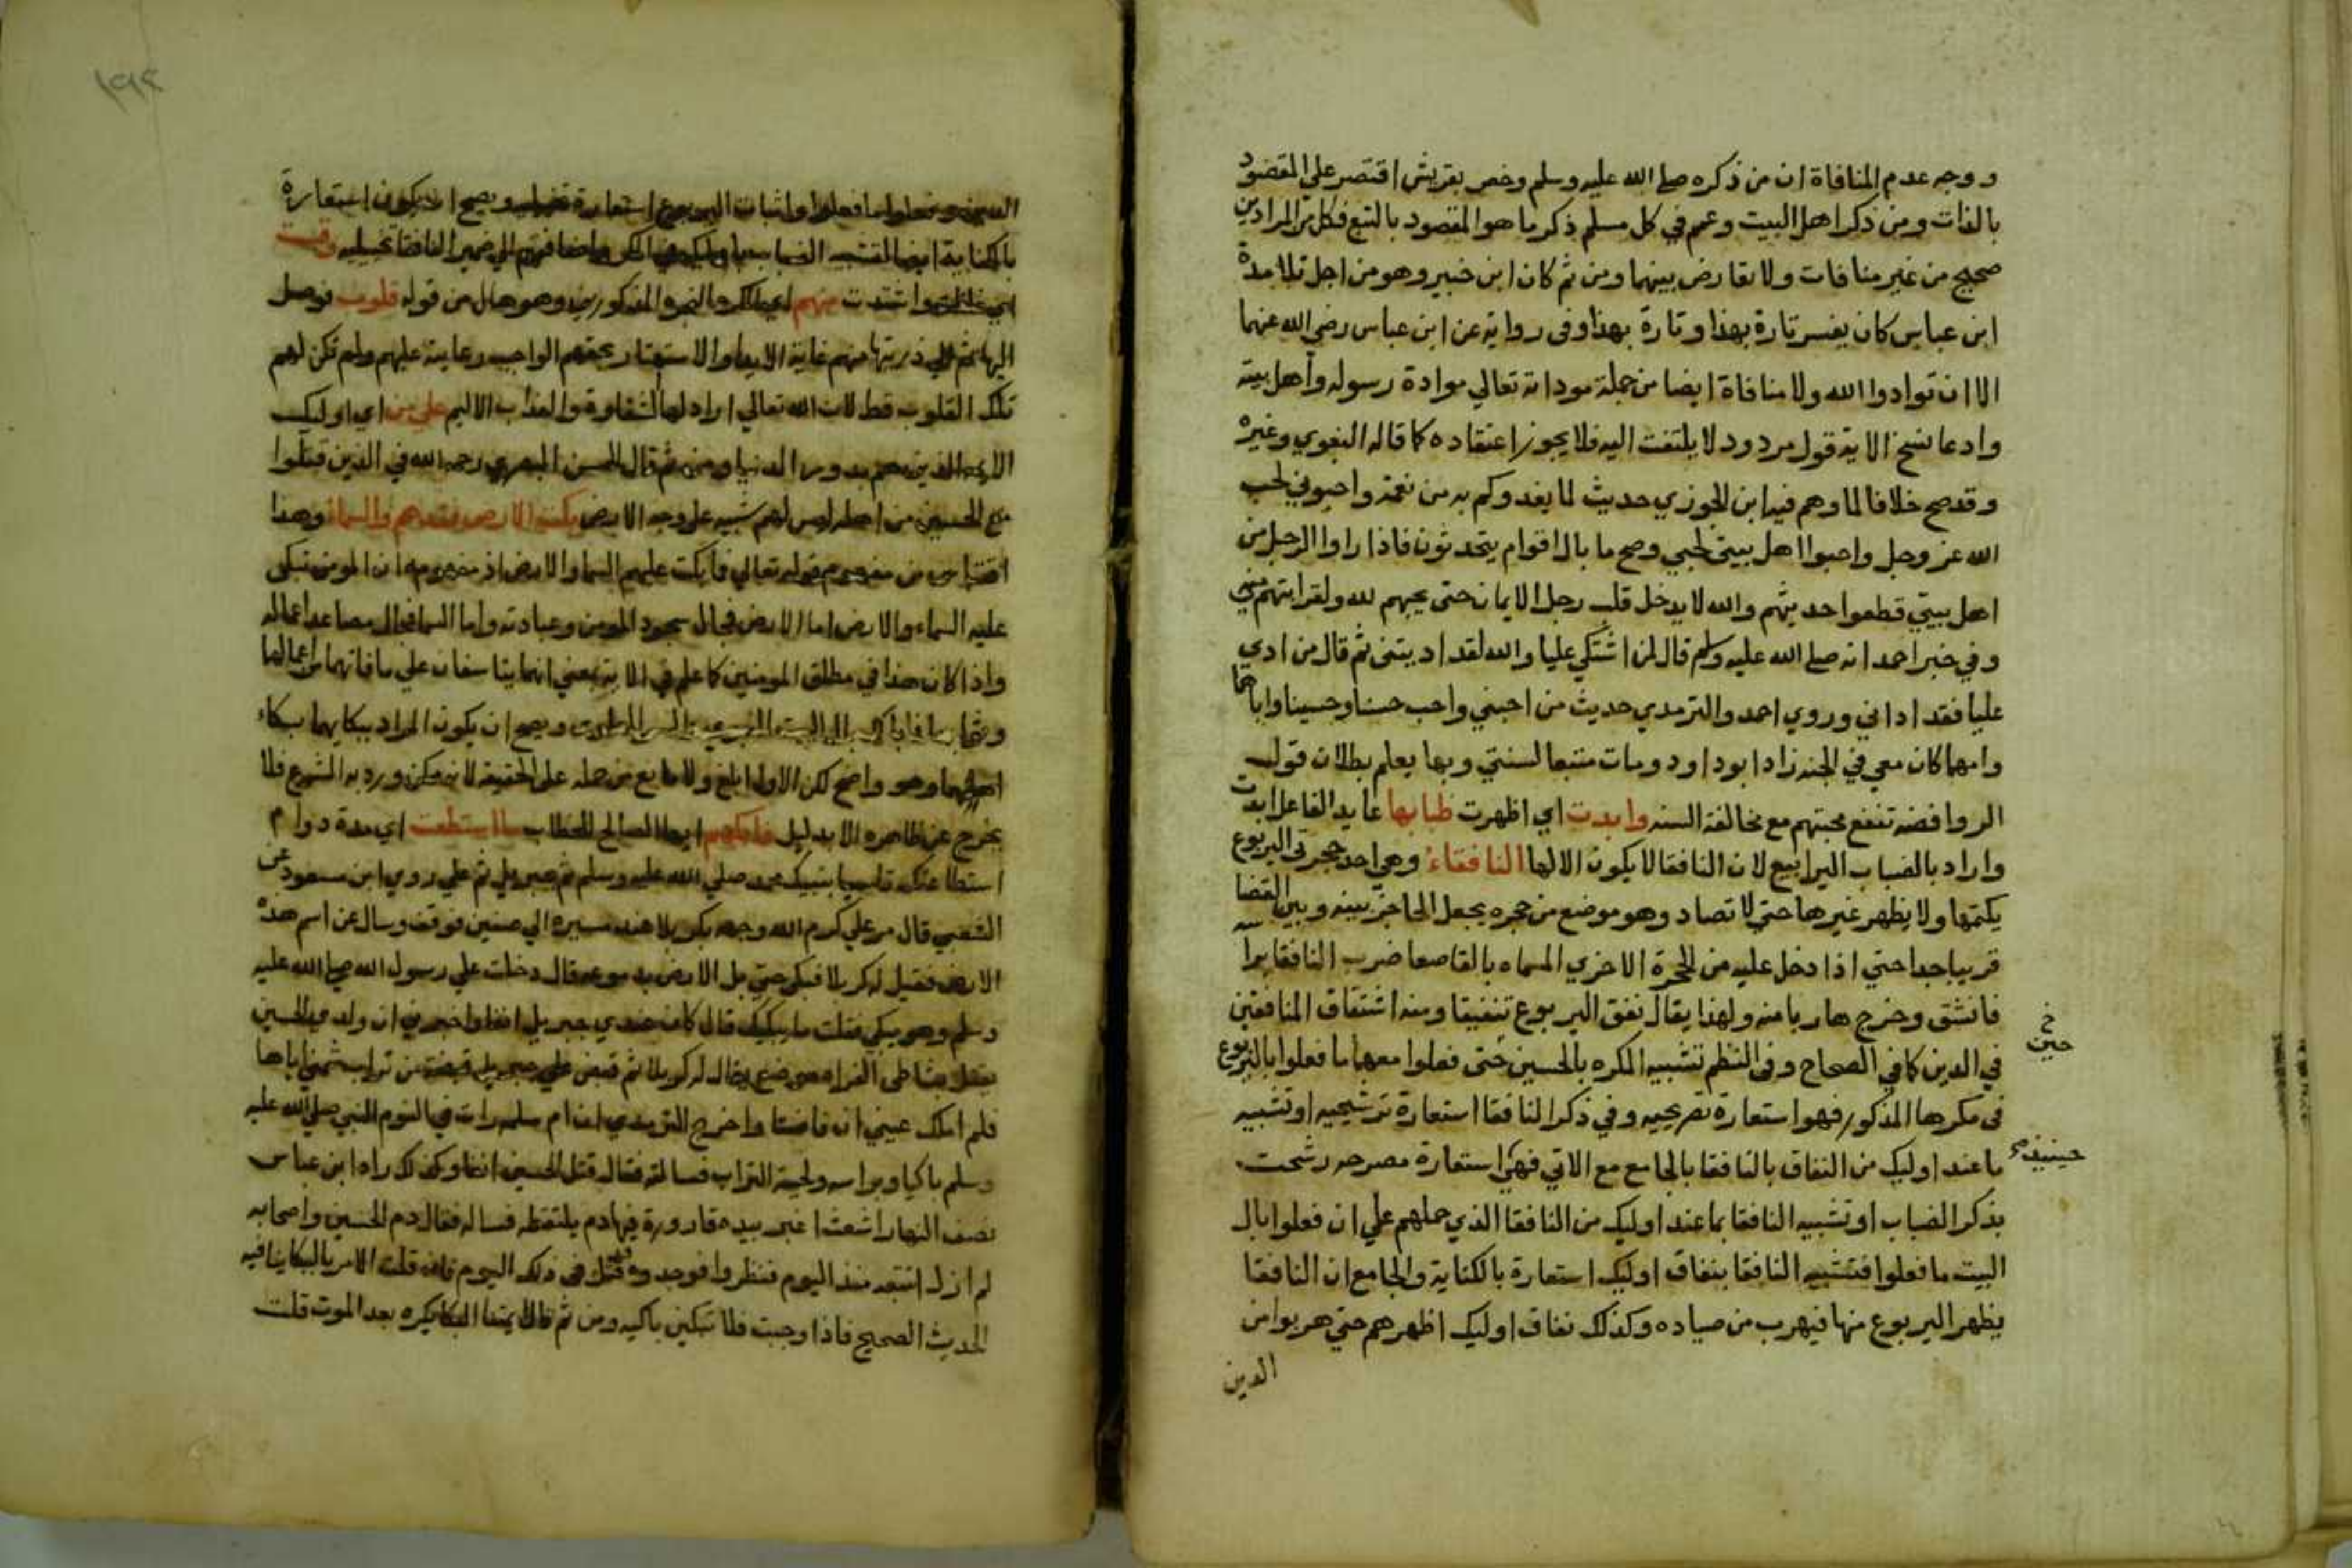 ووجه عدم المنافاة ان من ذكره صلي الله عليه وسلم وخص بقريش اقتصر علي المقصود
بالذات ومن ذكر اهل البيت وعم في كل مسلم ذكر ما هو المقصود بالتبع فكل من المرادين
صحيح من غير منافات ولا تعارض بينهما ومن ثم كان ابن جبير وهو من اجل تلامدة
ابن عباس كان يفسر تارة بهذا وتارة بهذا وفي رواية عن ابن عباس رضي الله عنهما
الا ان توادوا الله ولا منافاة ايضا من جملة مودا ته تعالي موادة رسوله وأهل بيته
وادعا نسخ الاية قول مردود لا يلتفت اليه فلا يجوز اعتقاده كما قاله البغوي وغيره
وقد صح خلافا لما وهم فيه ابن الجوزي حديث لما يغدوكم به من نعمة واحبوني لحب
الله عز وجل واحبوا اهل بيتي لحبي وصح ما بال اقوام يتحدثون فاذا راوا الرجل من
اهل بيتي قطعوا حديثهم والله لا يدخل قلب رجل الايمان حتى يحبهم لله ولقرابتهم مني
وفي خبر احمد انه صلي الله عليه وسلم قال لمن اشتكي عليا والله لقد اديتني ثم قال من ادي
عليا فقد اداني وروي احمد والترمدي حديث من احبني واحب حسنا وحسينا واباهما
وامهما كان معي في الجنه زاد ابوداود ومات متبعا لسنتي وبها يعلم بطلان قول
الروافضه تنفع محبتهم مع مخالفة السنه وابدت اي اظهرت ضبابها عايد الفاعل ابدت
واراد بالضباب اليرابيع لان النافقا لا يكون الا لها النافقاء وهي احد حجرتي اليربوع
يكتمها ولا يظهر غيرها حتي لا تصاد وهو موضع من حجره يجعل الحاجز بينه وبين الفضا
قريبا جدا حتي اذا دخل عليه من الحجرة الاخري المسماه بالقاصعا ضرب النافقا برا
فانشق وخرج هاربا منه ولهذا يقال نفق اليربوع تنفيقا ومنه اشتقاق المنافقين
حين خ
في الدين كما في الصحاح وفي النظم تشبيه المكره بالحسين حتى فعلوا معهما ما فعلوا باليربوع
في مكرها المذكور فهو استعارة تصريحيه وفي ذكر النافقا استعارة ترشيحيه او تشبيه
حينيذ
ما عند اوليك من النفاق بالنافقا بالجامع مع الاتي فهي استعارة مصرحه رشحت
بذكر الضباب او تشبيه النافقا بما عند اوليك من النافقا الذي حملهم علي ان فعلوا بال
البيت ما فعلوا فتشبيه النافقا بنفاق اوليك استعارة بالكناية والجامع ان النافقا
يظهر اليربوع منها فيهرب من صياده وكذلك نفاق اوليك اظهرهم حتي هربوا من
الدين
١٩٢
الدين وفعلوا ما فعلوا واثبات اليربوع استعارة تخييليه ويصح ان يكون استعارة
بالكناية ايضا لتشبيه الضباب الي ضمير النافقا تخييليه وقست
اي واشتدت منهم المذكورين وهو حال من قوله قلوب توصل
اليها ثم الي ذريتها منهم غاية الايذا والاستهتار بحقهم الواجب رعايته عليهم ولم تكن لهم
تلك القلوب قط لان الله تعالي اراد لها الشقاوة والعذاب الاليم علي من اي اوليك
الايمه الذين هم بدور الدنيا ومن ثم قال الحسن البصري رحمه الله في الذين قتلوا
مع الحسين من اهله ليس لهم شبيه علي وجه الارض بكت الارض فقدهم والسماء وهذا
اقتباس من مفهوم قوله تعالي فما بكت عليهم السما والارض اذ مفهومه ان المومن تبكي
عليه السماء والارض اما الارض فمحال سجود المومن وعبادته واما السما فمحال مصاعد اعماله
واذا كان هذا في مطلق المومنين كما علم في الاية بمعني انهما يتاسفان علي ما فاتهما من اعمالها
ويصح ان يكون المراد ببكايهما بكاء
اهلهما وهو واضح لكن الاول ابلغ ولا مانع من حمله علي الحقيقه لانه ممكن ورد به الشرع فلا
يخرج عن ظاهره الا بدليل فابكهم ايها الصالح للخطاب ما استطعت اي مدة دوام
استطاعتك تاسيا بنبيك محمد صلي الله عليه وسلم ثم جبريل ثم علي روي ابن مسعود عن
الشعبي قال مر علي كرم الله وجهه بكربلا عند مسيره الي صفين فوقف وسال عن اسم هذه
الارض فقيل له كربلا فبكي حتي بل الارض بدموعه فقال دخلت علي رسول الله صلي الله عليه
وسلم وهو يبكي فقلت ما يبكيك قال كان عندي جبريل انفا واخبرني ان ولدي الحسين
يقتل بشاطي الفرا موضع يقال له كربلا ثم قبض جبريل قبضة من تراب شمني اياها
فلم املك عيني ان فاضتا واخرج الترمدي ان ام سلمه رات في النوم النبي صلي الله عليه
وسلم باكيا وبراسه ولحيته التراب فسالته فقال قتل الحسين انفا وكذلك راه ابن عباس
نصف النهار اشعث اغبر بيده قارورة فيها دم يلتقطه فساله فقال دم الحسين واصحابه
لم ازل اتتبعه منذ اليوم فنظروا فوجدوه قد قتل في ذلك اليوم فان قلت الامر بالبكا ينافيه
الحديث الصحيح فاذا وجبت فلا تبكين باكيه ومن ثم قال ايمتنا البكا يكره بعد الموت قلت